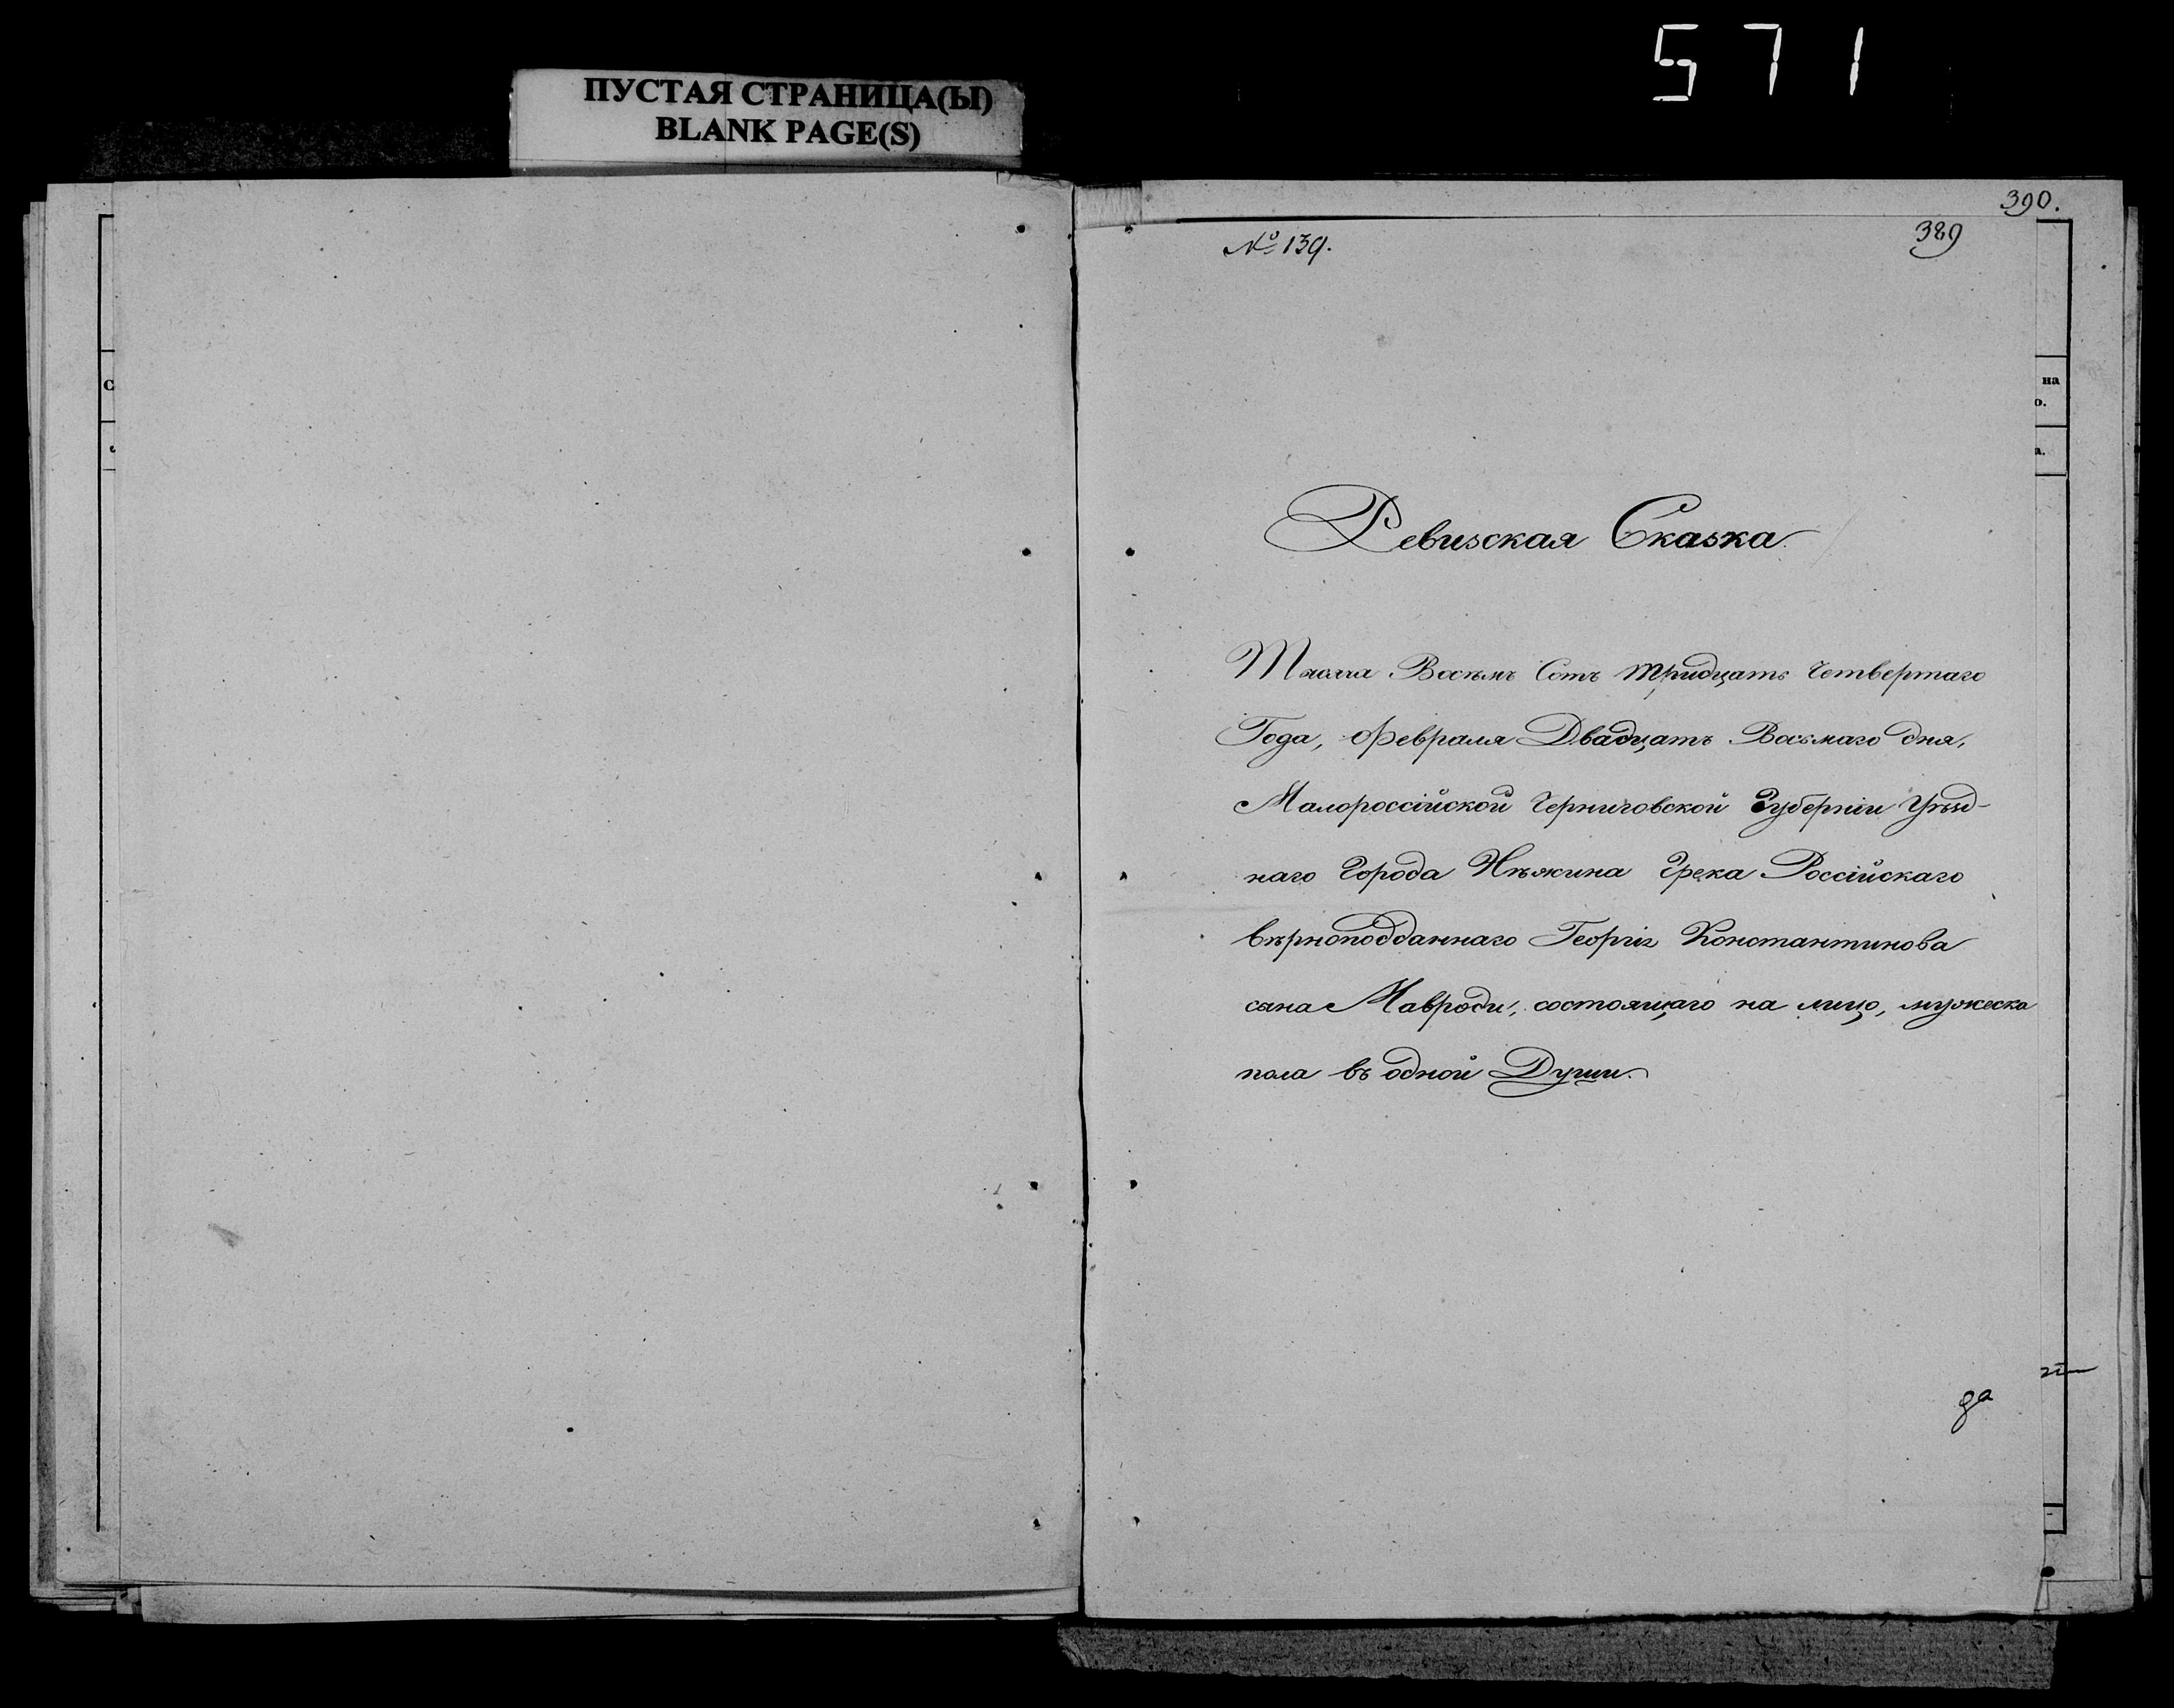 571
ПУСТАЯ СТРАНИЦА(Ы)
BLANK PAGE(S)
390.
389
№ 139.
с
на
о.
а.
Ревизская Сказка
Тысяча Восемь Сотъ Тридцать Четвертаго
Года, Февраля Двадцать Восьмаго дня,
Малороссійской Черниговской Губерніи Уѣзд-
наго Города Нѣжина Грека Россійскаго
вѣрноподданнаго Георгія Константинова
сына Мавроди, состоящаго на лицо, мужеска
пола въ одной Души.
да